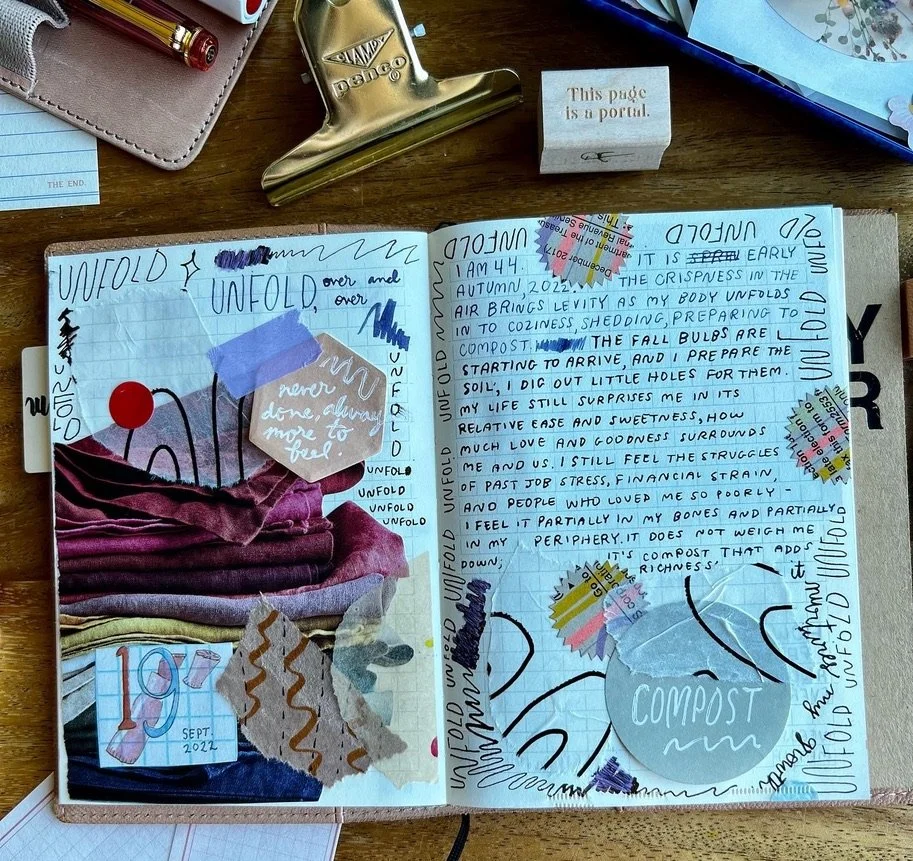 STAMPY
penco
This page
is a portal.
THE END.
UNFOLD
UNFOLD, over and
over
UNFOLD
UNFOLD
never
done, always
more to
feel.
UNFOLD
UNFOLD
UNFOLD
UNFOLD
19
SEPT.
2022
UNFOLD
UNFOLD
UNFOLD
December 2017)
artment of the Treasu
nal Revenue Service
I AM 44. IT IS EARLY
AUTUMN, 2022. THE CRISPNESS IN THE
AIR BRINGS LEVITY AS MY BODY UNFOLDS
IN TO COZINESS, SHEDDING, PREPARING TO
COMPOST. THE FALL BULBS ARE
STARTING TO ARRIVE, AND I PREPARE THE
SOIL, I DIG OUT LITTLE HOLES FOR THEM.
MY LIFE STILL SURPRISES ME IN ITS
RELATIVE EASE AND SWEETNESS, HOW
MUCH LOVE AND GOODNESS SURROUNDS
ME AND US. I STILL FEEL THE STRUGGLES
OF PAST JOB STRESS, FINANCIAL STRAIN,
AND PEOPLE WHO LOVED ME SO POORLY –
I FEEL IT PARTIALLY IN MY BONES AND PARTIALLY
IN MY PERIPHERY. IT DOES NOT WEIGH ME
DOWN; IT'S COMPOST THAT ADDS
RICHNESS
it
my
growth
Go to
corporation
COMPOST
UNFOLD
UNFOLD
UNFOLD
UNFOLD
UNFOLD
UNFOLD
UNFOLD
UNFOLD
UNFOLD
Y
R